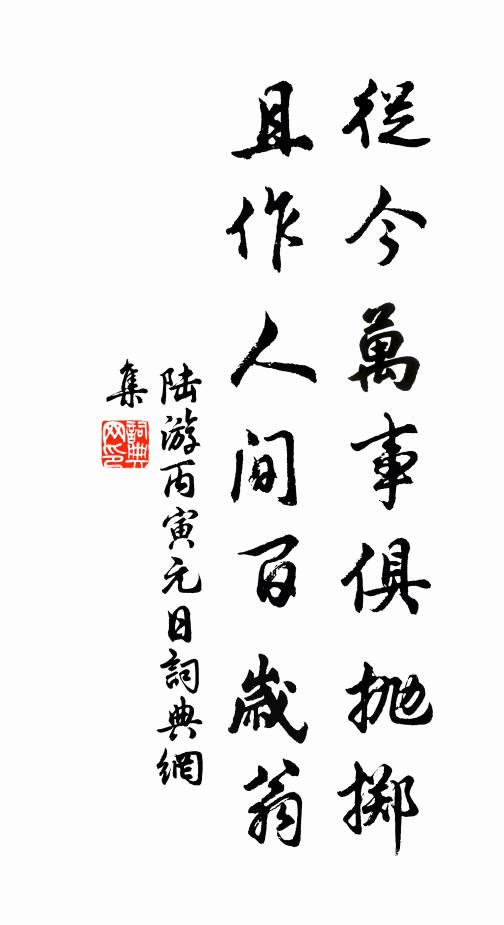 從今萬事俱抛擲
且作人間百歲翁
陆游丙寅元日詞典網
集
詞典
网印